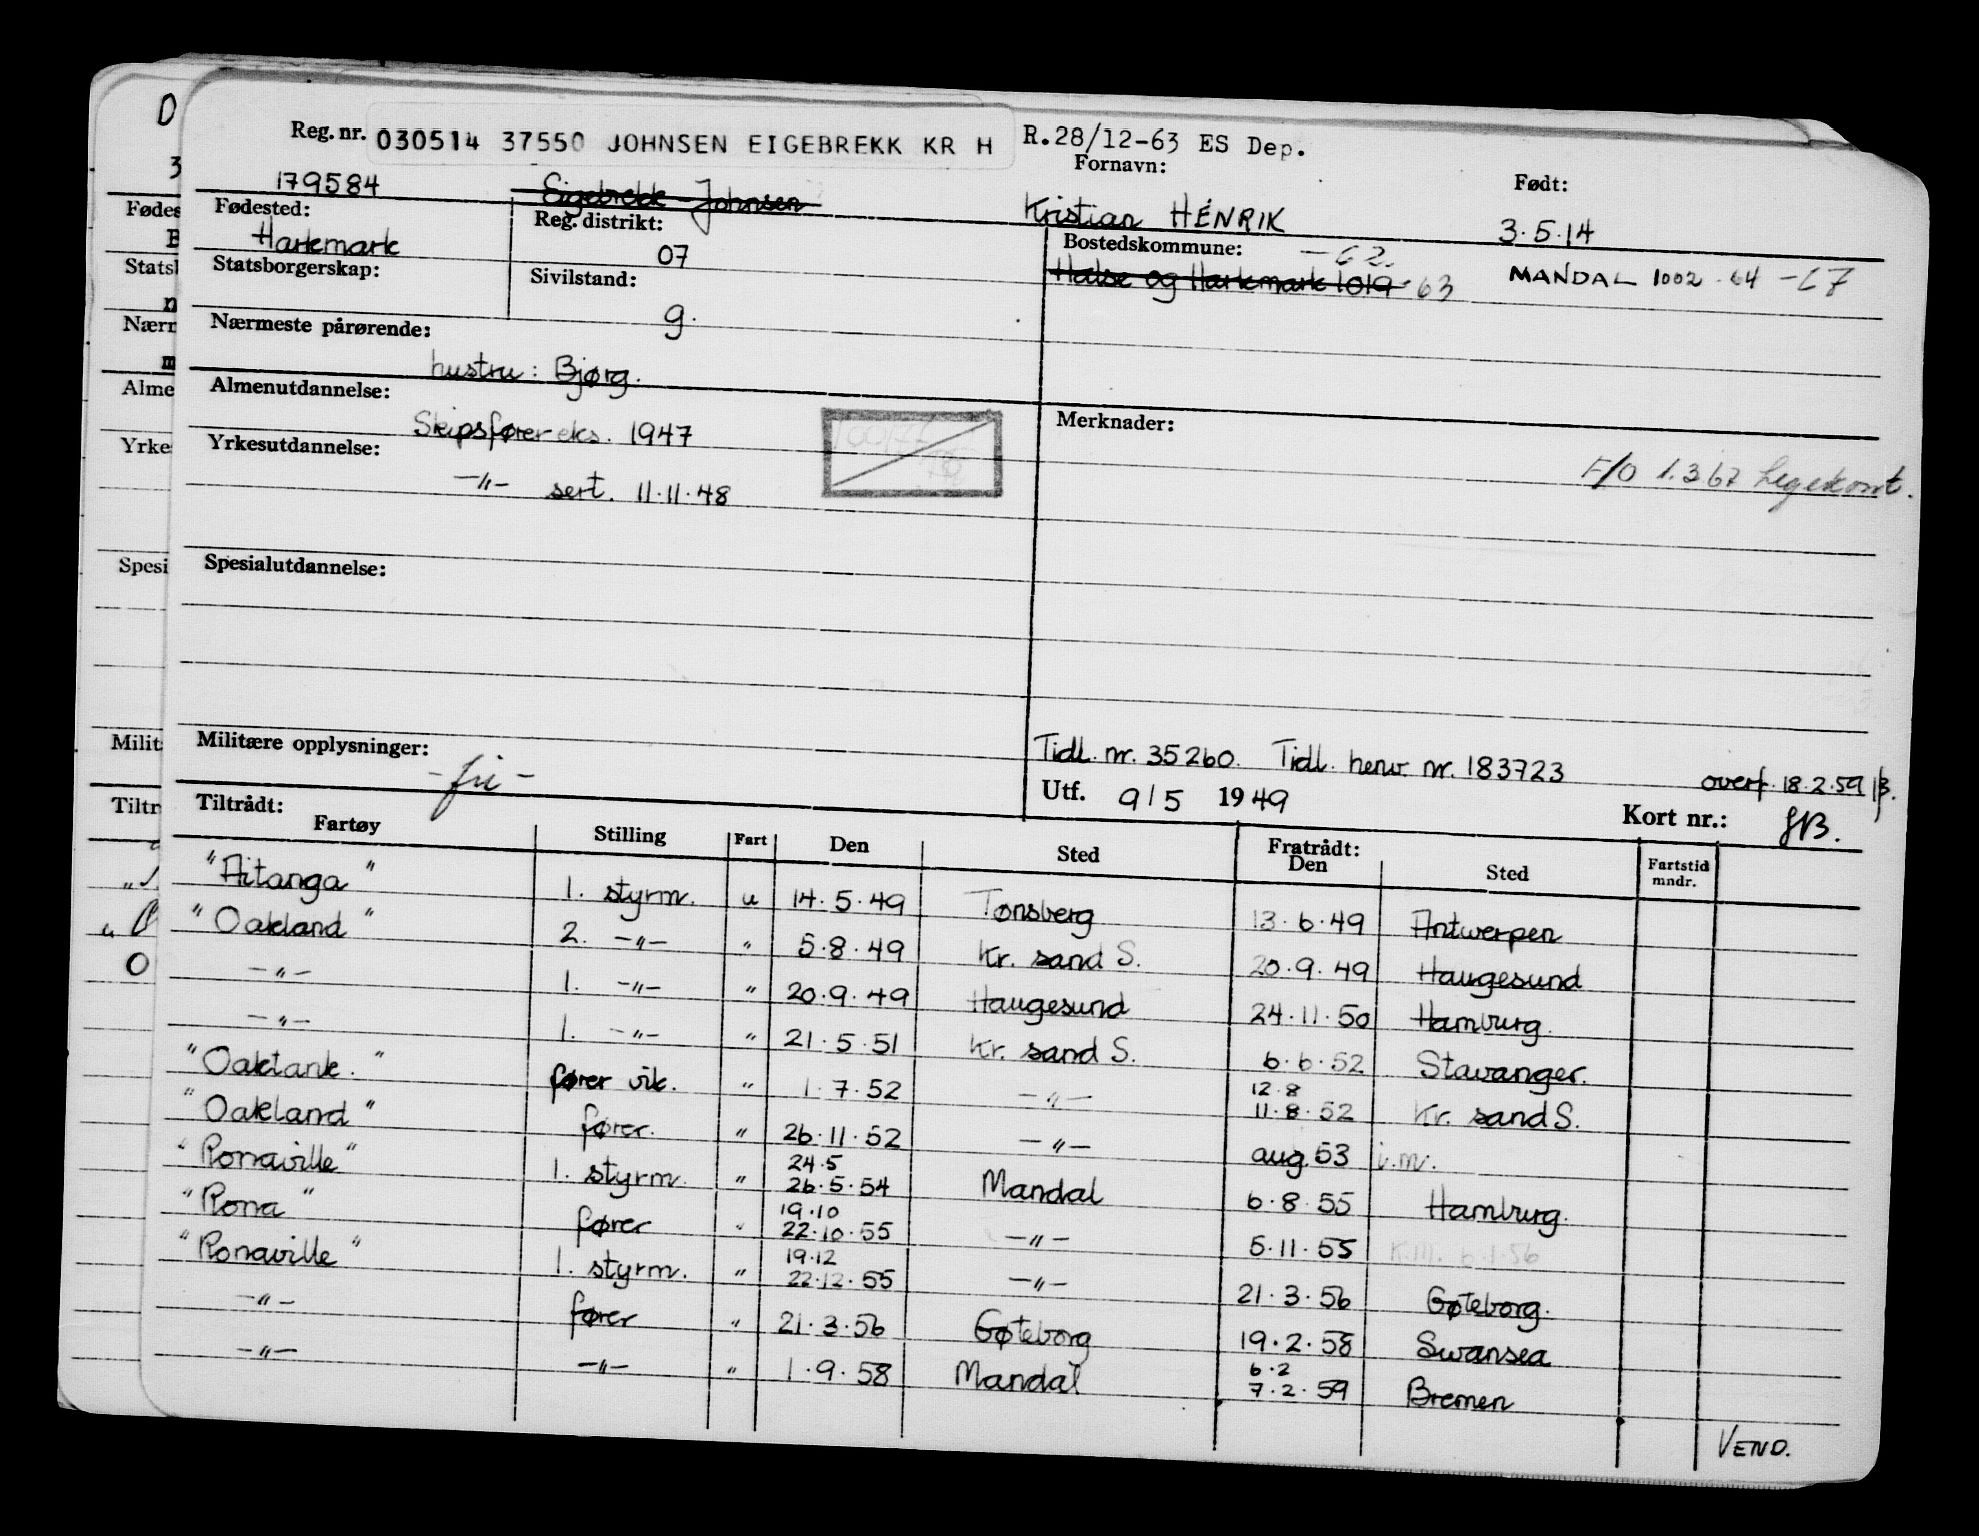 Reg. nr. 030514 37550 JOHNSEN EIGEBREKK KR H R.28/12-63 ES Dep.
Fornavn: Født:
179584 Eigebrekk Johnsen Kristian HENRIK 3.5.14
Fødested: Reg. distrikt: Bostedskommune: -62.
Harkmark 07 Halse og Harkmark 1019 -63 MANDAL 1002 -64 -67
Statsborgerskap: Sivilstand:
g.
Nærmeste pårørende:
hustru: Bjørg.
Almenutdannelse: Merknader:
Skipsfører eks. 1947
F/O 1.3 67 Legekont.
Yrkesutdannelse:
-"- sert. 11.11.48
Spesialutdannelse:
Militære opplysninger: Tidl. nr. 35260. Tidl. henv. nr. 183723 overf. 18.2.59
-fri-
Utf. 9/5 1949 Kort nr.:
Tiltrådt: Fratrådt:
Fartøy Stilling Fart Den Sted Den Sted Fartstid mndr.
"Aitanga" 1. styrm. u 14.5.49 Tønsberg 13.6.49 Antwerpen
"Oakland" 2. -"- " 5.8.49 Kr. sand S. 20.9.49 Haugesund
-"- 1. -"- " 20.9.49 Haugesund 24.11.50 Hamburg.
-"- 1. -"- " 21.5.51 Kr. sand S. 6.6.52 Stavanger.
"Oaktank." fører vik. " 1.7.52 -"- 12.8 11.8.52 Kr. sand S.
"Oakland" fører. " 26.11.52 -"- aug. 53 i.m.
"Ronaville" 1. styrm. " 24.5 26.5.54 Mandal 6.8.55 Hamburg.
"Rona" fører " 19.10 22.10.55 -"- 5.11.55
"Ronaville" 1. styrm. " 19.12 22.12.55 -"- 21.3.56 Gøteborg.
-"- fører " 21.3.56 Gøteborg 19.2.58 Swansea
-"- -"- " 1.9.58 Mandal 6.2 7.2.59 Bremen
VEND.